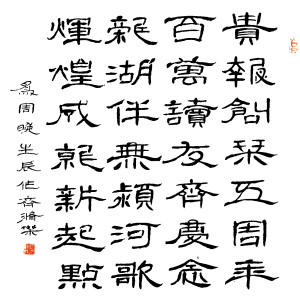 貴報創栞五周年
百萬讀友齊慶念
龍湖伴無潁河歌
輝煌成就新起點
為周晚生辰作齊